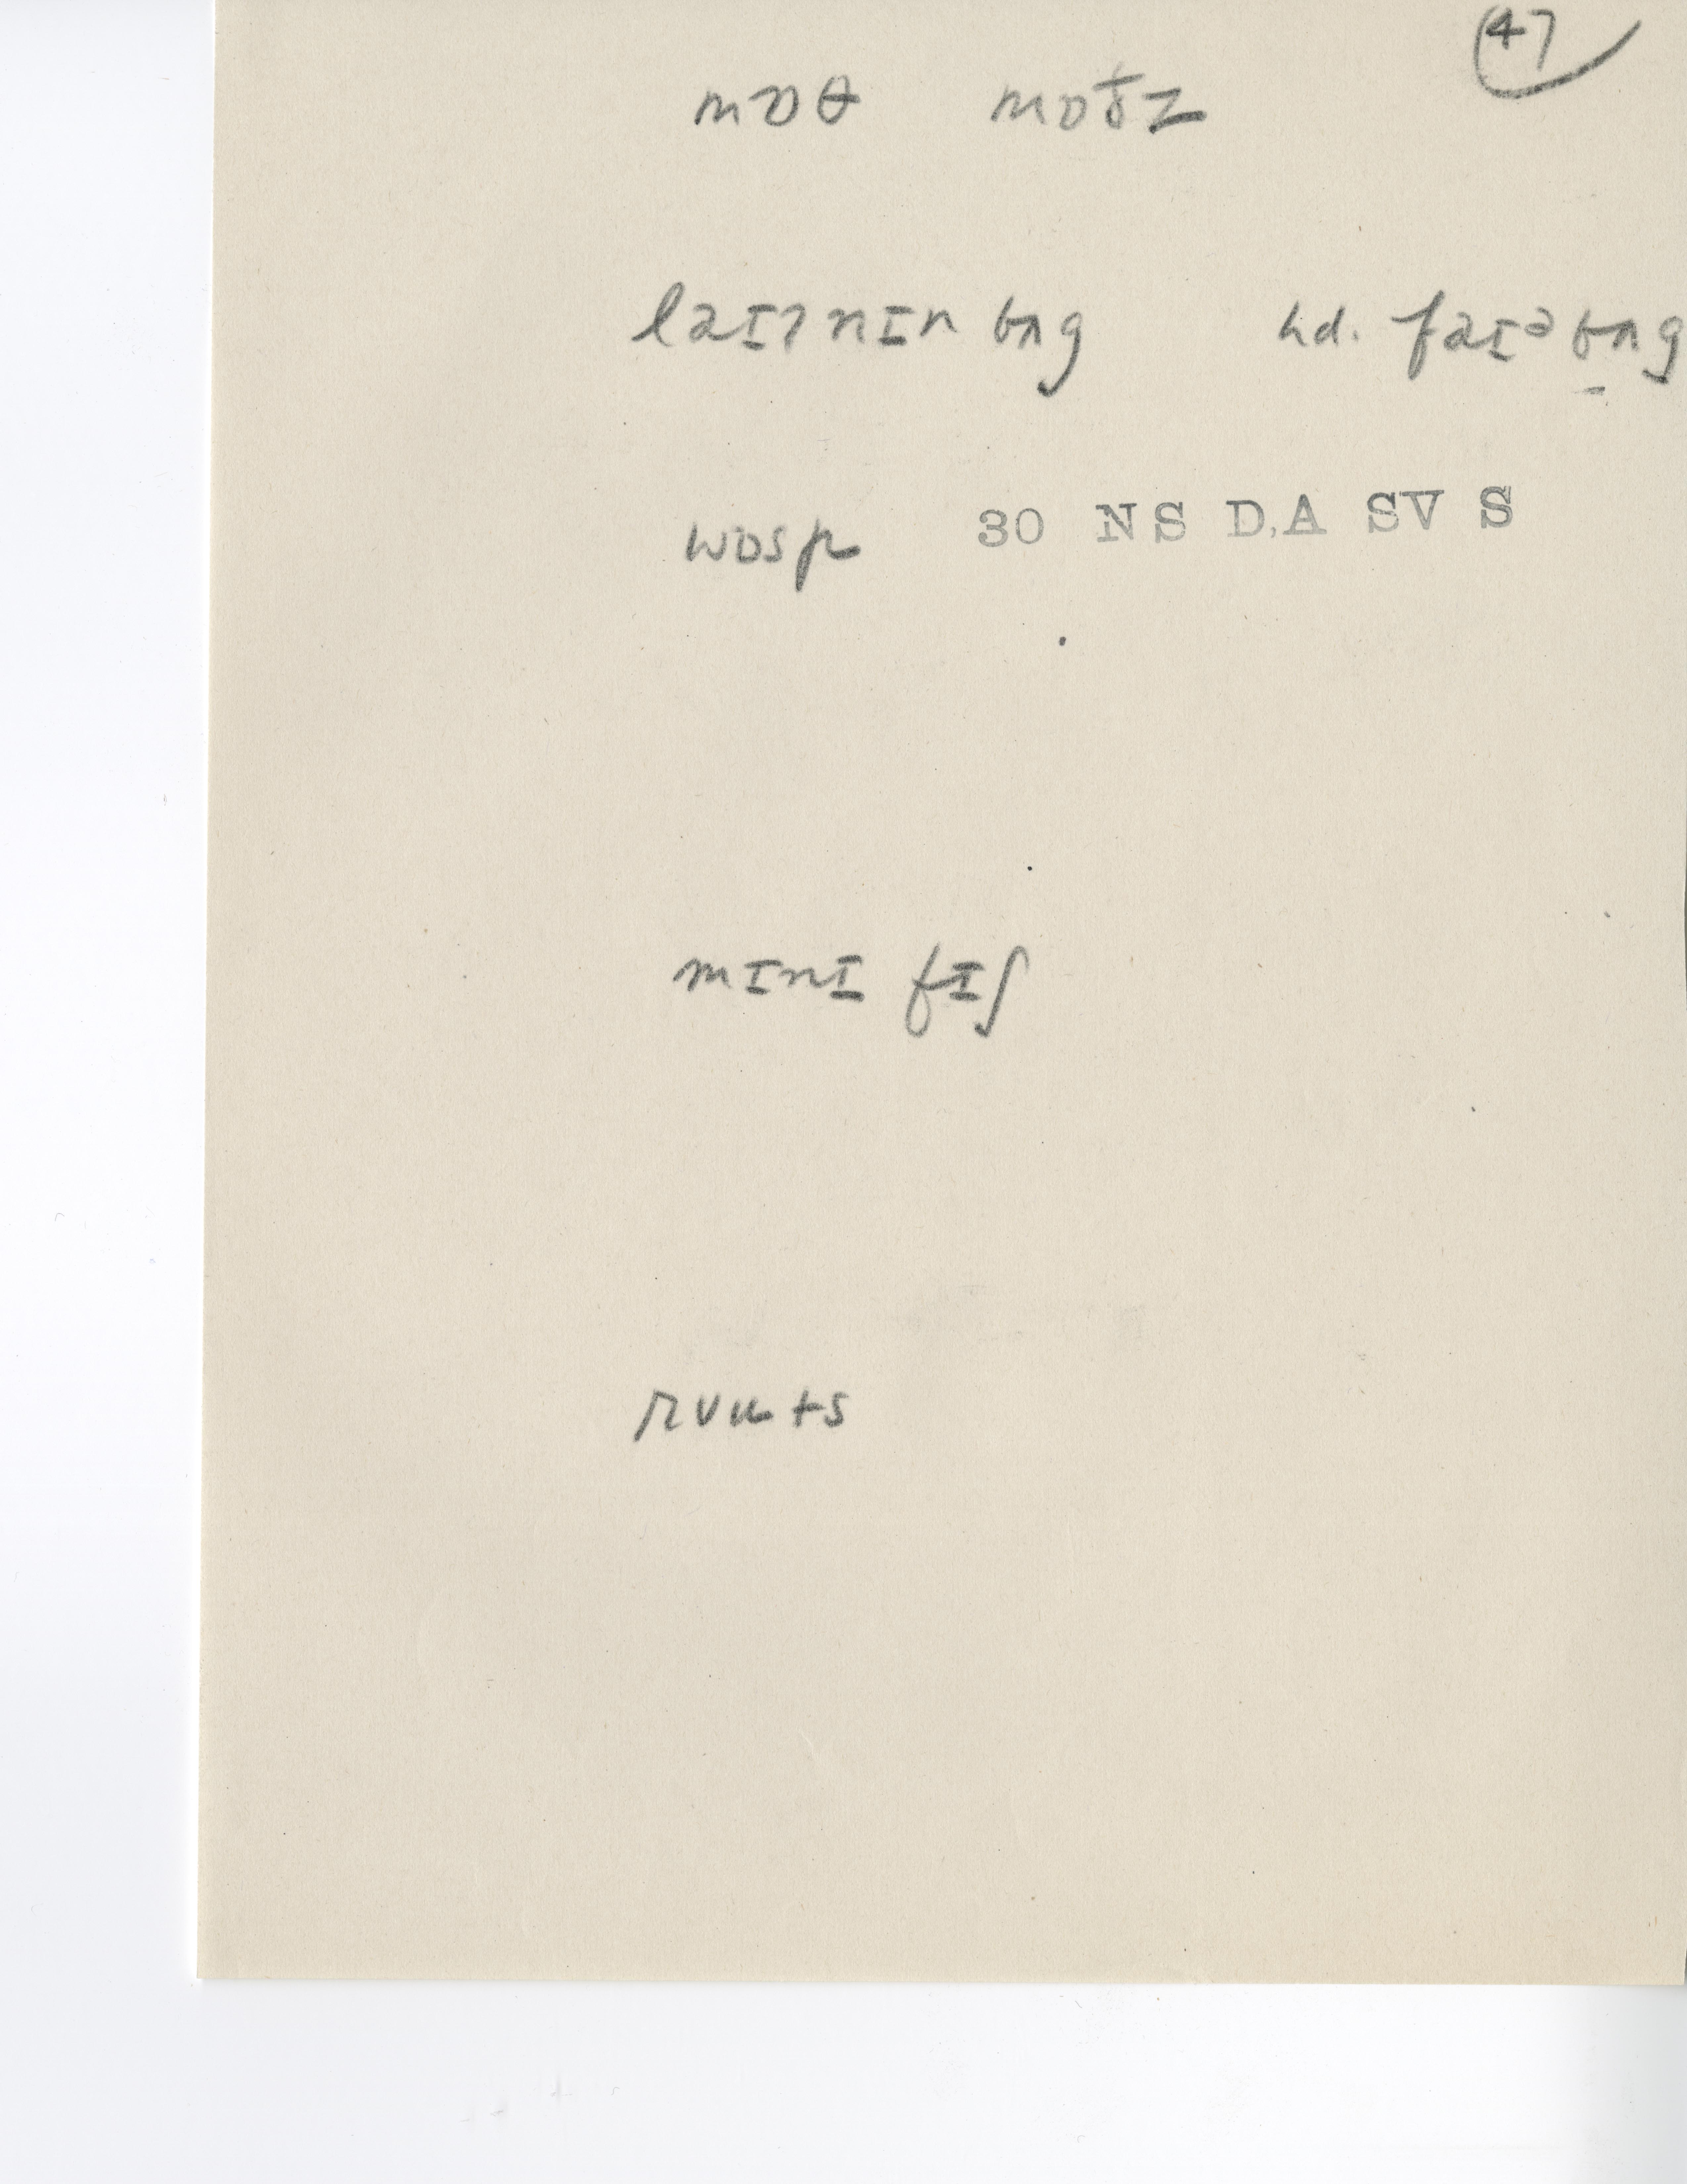 47
mɒθ mɒðz
laɪʔnɪn bʌg hd. faɪə bʌg
wɒsp 30 NS D.A SV S
mɪnɪ fɪʃ
rʊuts